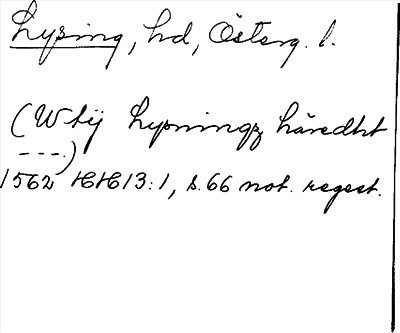 Lysing, hd, Österg. l.
(Wtij Lysningz häredht
----)
1562 HH 13:1, s. 66 not. regest.